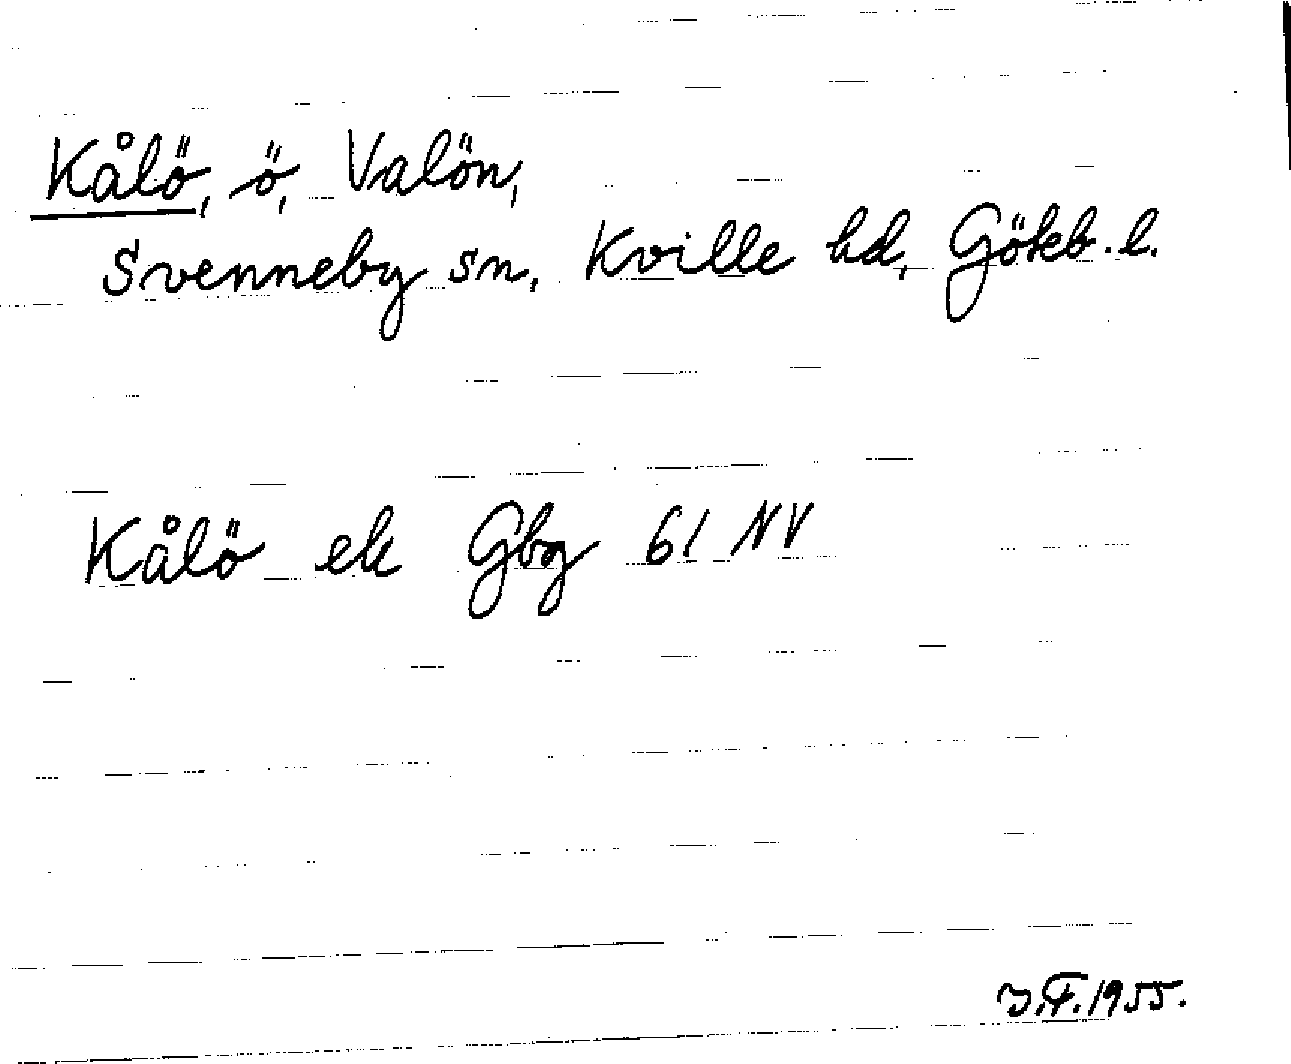 Kålö, ö, Valön,
Svenneby sn, Kville hd, Gökb. l.
Kålö ek Gbg 61 NV
J.F. 1955.